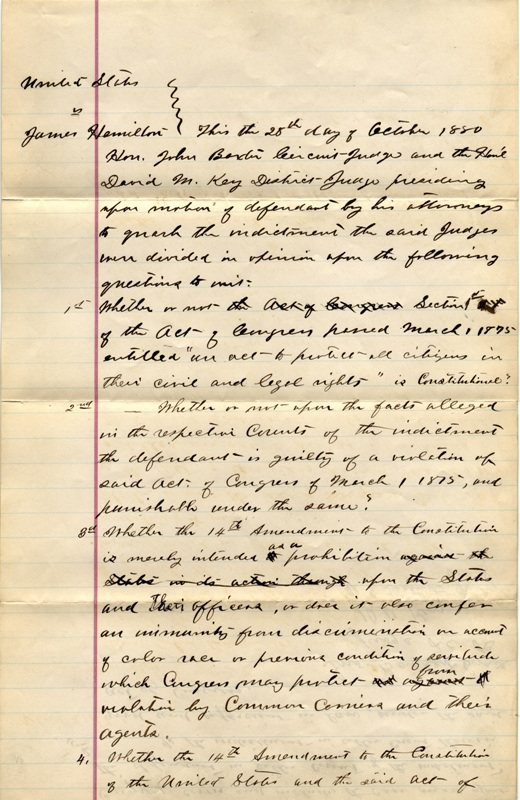 United States
vs
James Hamilton } This the 28th day of October 1880
Hon. John Baxter Circuit Judge and the Hon'l
David M. Key District Judge presiding
upon motion of defendant by his attorneys
to quash the indictment the said Judges
were divided in opinion upon the following
questions to wit:
1st Whether or not the Act of Congress Section 1st
of the Act of Congress passed March 1 1875
entitled "an act to protect all citizens in
their civil and legal rights" is Constitutional?
2nd — Whether or not upon the facts alleged
in the respective Counts of the indictment
the defendant is guilty of a violation of
said Act of Congress of March 1 1875, and
punishable under the same?
3d Whether the 14th Amendment to the Constitution
is merely intended as a prohibition against the
States in its action through upon the States
and Their officers, or does it also confer
an immunity from discrimination on account
of color race or previous condition of servitude
which Congress may protect against from
violation by Common Carriers and their
agents.
4. Whether the 14th Amendment to the Constitution
of the United States and the said act of